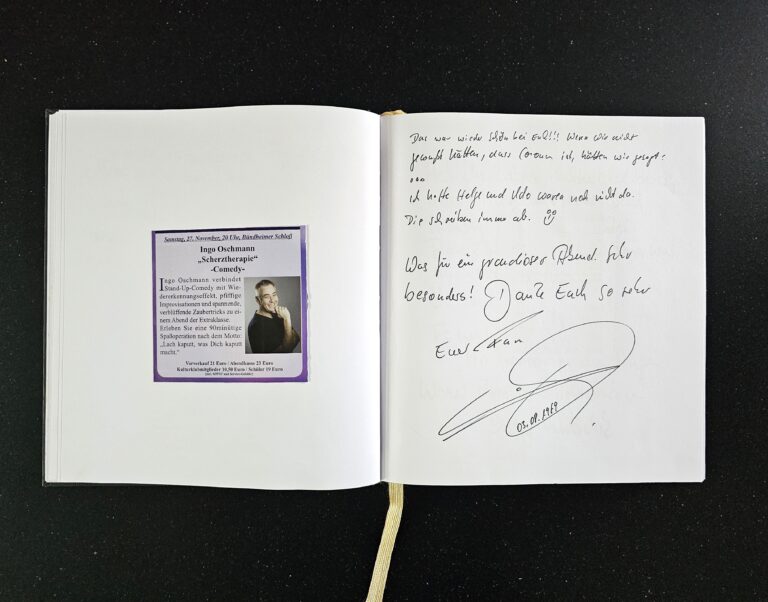 Samstag, 27. November, 20 Uhr, Bündheimer Schloß
Ingo Oschmann
„Scherztherapie"
-Comedy-
Ingo Oschmann verbindet
Stand-Up-Comedy mit Wie-
dererkennungseffekt, pfiffige
Improvisationen und spannende,
verblüffende Zaubertricks zu ei-
nem Abend der Extraklasse.
Erleben Sie eine 90minütige
Spaßoperation nach dem Motto:
„Lach kaputt, was Dich kaputt
macht."
Vorverkauf 21 Euro / Abendkasse 23 Euro
Kulturklubmitglieder 10,50 Euro / Schüler 19 Euro
Das war wieder schön bei Euch!!! Wenn wir nicht
gewußt hätten, dass Corona ist, hätten wir gesagt:
...
ich hoffe Helge und Udo waren noch nicht da.
Die schreiben immer ab.
Was für ein grandioser Abend. Sehr
besonders! Danke Euch so sehr
Euer Fan